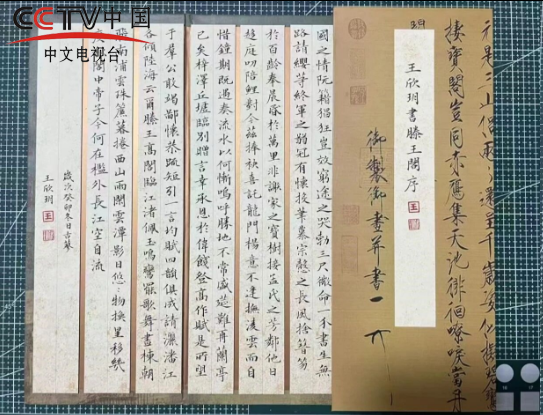 CCTV中国
中文电视台
元是三山侣兩兩還呈千歲姿似擬碧鸞
棲寶閣豈同赤雁集天池徘徊嘹唳當丹
御製御畫并書一
王欣玥書滕王閣序
王
國之情阮籍猖狂豈效窮途之哭勃三尺微命一介書生無
路請纓等終軍之弱冠有懷投筆慕宗慤之長風捨簪笏
於百齡奉晨昏於萬里非謝家之寶樹接孟氏之芳鄰他日
趨庭叨陪鯉對今茲捧袂喜託龍門楊意不逢撫凌雲而自
惜鍾期既遇奏流水以何慚嗚呼勝地不常盛筵難再蘭亭
已矣梓澤丘墟臨別贈言幸承恩於偉餞登高作賦是所望
于羣公敢竭鄙懷恭疏短引一言均賦四韻俱成請灑潘江
各傾陸海云爾滕王高閣臨江渚佩玉鳴鸞罷歌舞畫棟朝
飛南浦雲珠簾暮捲西山雨閒雲潭影日悠悠物換星移幾
閣中帝子今何在檻外長江空自流
歲次癸卯冬日
王欣玥